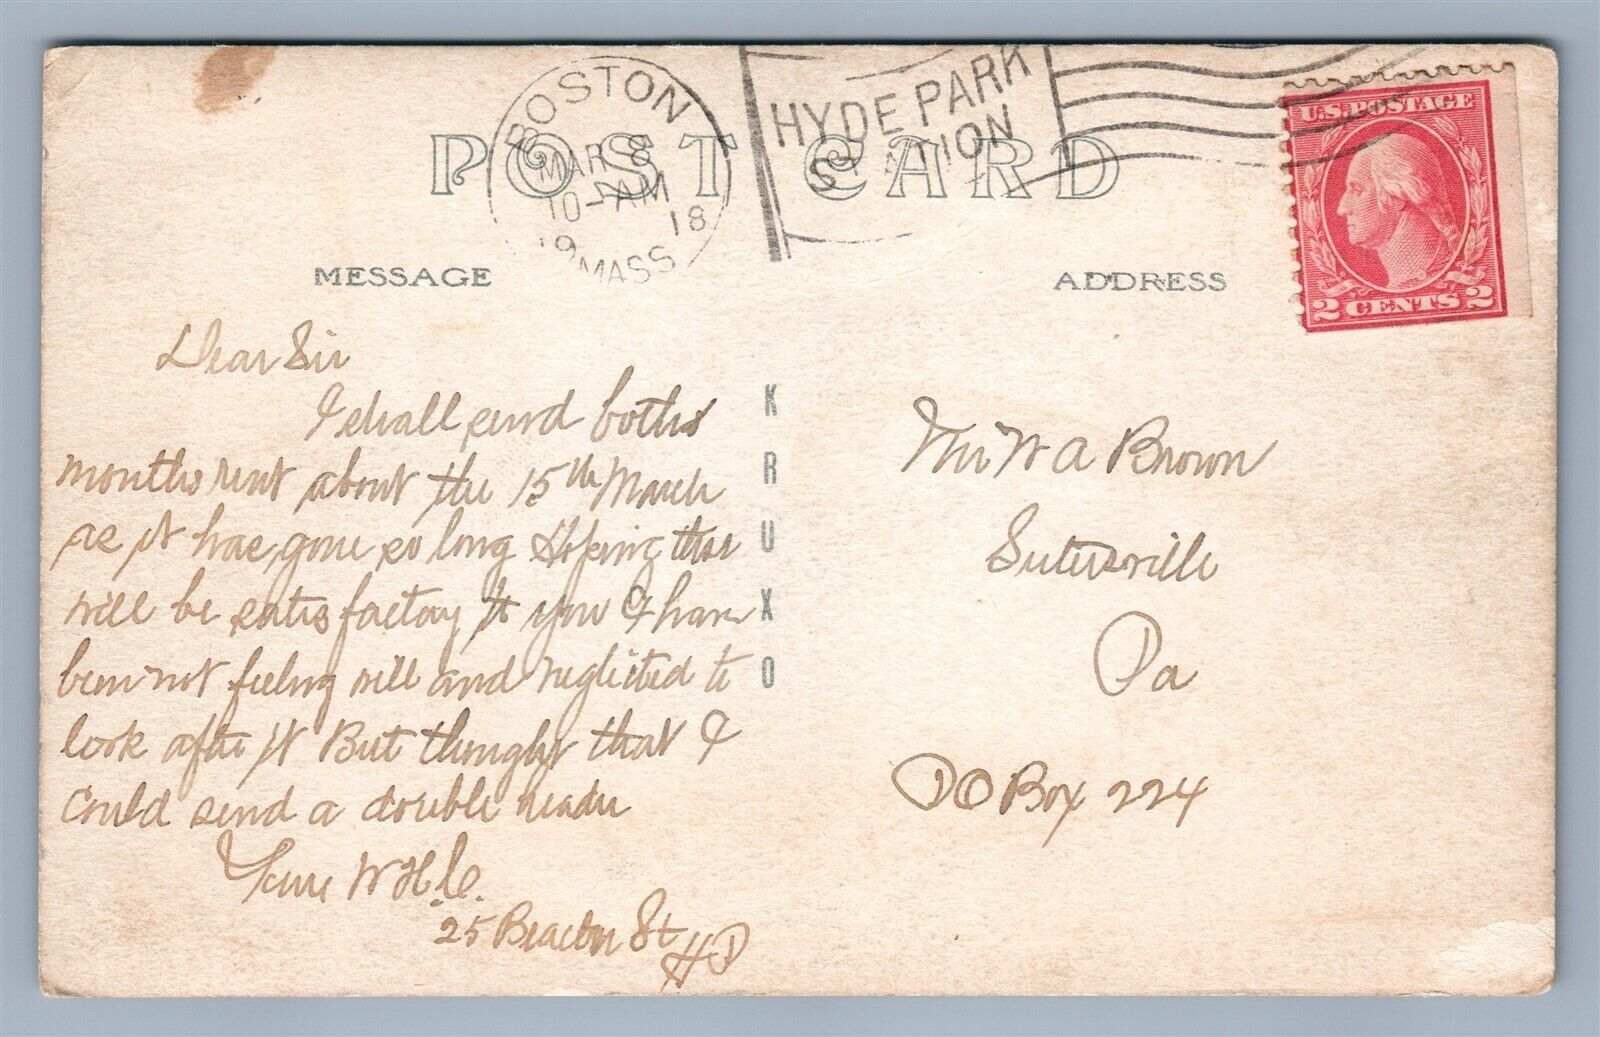 BOSTON
MAR 8
10-AM
1918
MASS
HYDE PARK
STATION
U.S. POSTAGE
2 CENTS 2
POST CARD
MESSAGE
ADDRESS
Dear Sir
I shall send boths
months rent about the 15th March
as it has gone so long Hoping this
will be satisfactory to you I have
been not feeling well and neglected to
look after it But thought that I
could send a double
Yours W H C.
25 Beacon St
HP
KRUXO
Mr W A Brown
Sutersville
Pa
PO Box 224